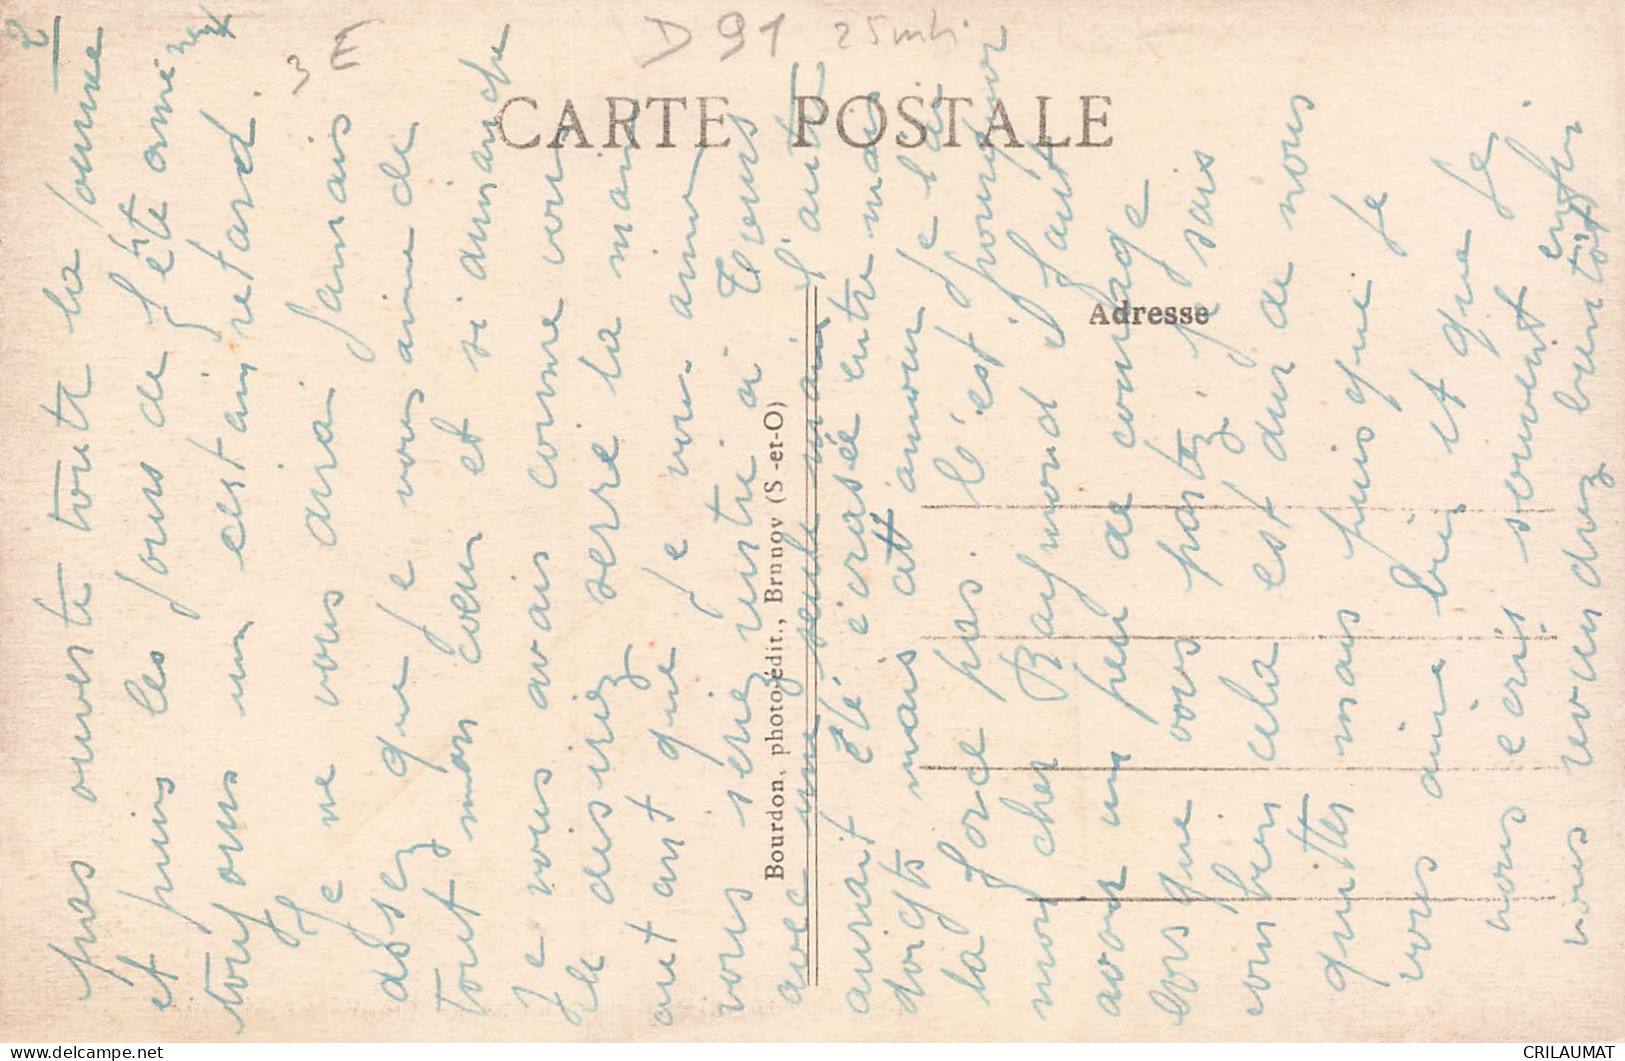 2
3 E
D 91
CARTE POSTALE
Adresse
Bourdon, photo-édit., Brunoy (S.-et-O)
pas ouverte toute la journée
et puis les jours de fête ami
toujours un certain retard.
Je ne vous dirai jamais
assez que je vous aime de
tout mon cœur et si dimanche
Je vous avais comme vous
le desiriez serré la main
autant que je vous aime
vous seriez rentré à
avec une seule main l'autre
aurait été écrasée entre mes
doigts mais cet amour je l'ai
la force pas. C'est pourquoi
mon cher Raymond il faut
avoir un peu de courage
lorsque vous partez, je sais
combien cela est dur de nous
quitter mais puisque je
vous aime bien et que je
vous écris souvent enfin
vous reviendrez bientôt
CRILAUMAT